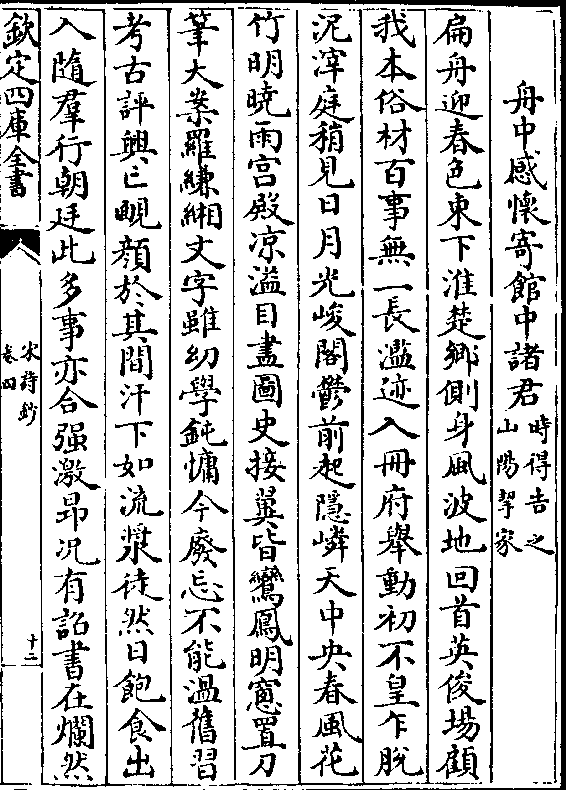 舟中感懷寄館中諸君時得告之山陽挈家
扁舟迎春色東下淮楚鄉側身風波地回首英俊場顧
我本俗材百事無一長濫迹入冊府舉動初不皇乍脫
泥滓庭稍見日月光峻閣鬱前起隱嶙天中央春風花
竹明曉雨宮殿凉溢目盡圖史接翼皆鸞鳳明窻置刀
筆大案羅縑緗文字雖幼學鈍慵今廢忘不能溫舊習
考古評興亡靦顔於其間汗下如流漿徒然日飽食出
入隨羣行朝廷此多事亦合强激昂况有詔書在爛然
欽定四庫全書
宋詩鈔
卷四
十二